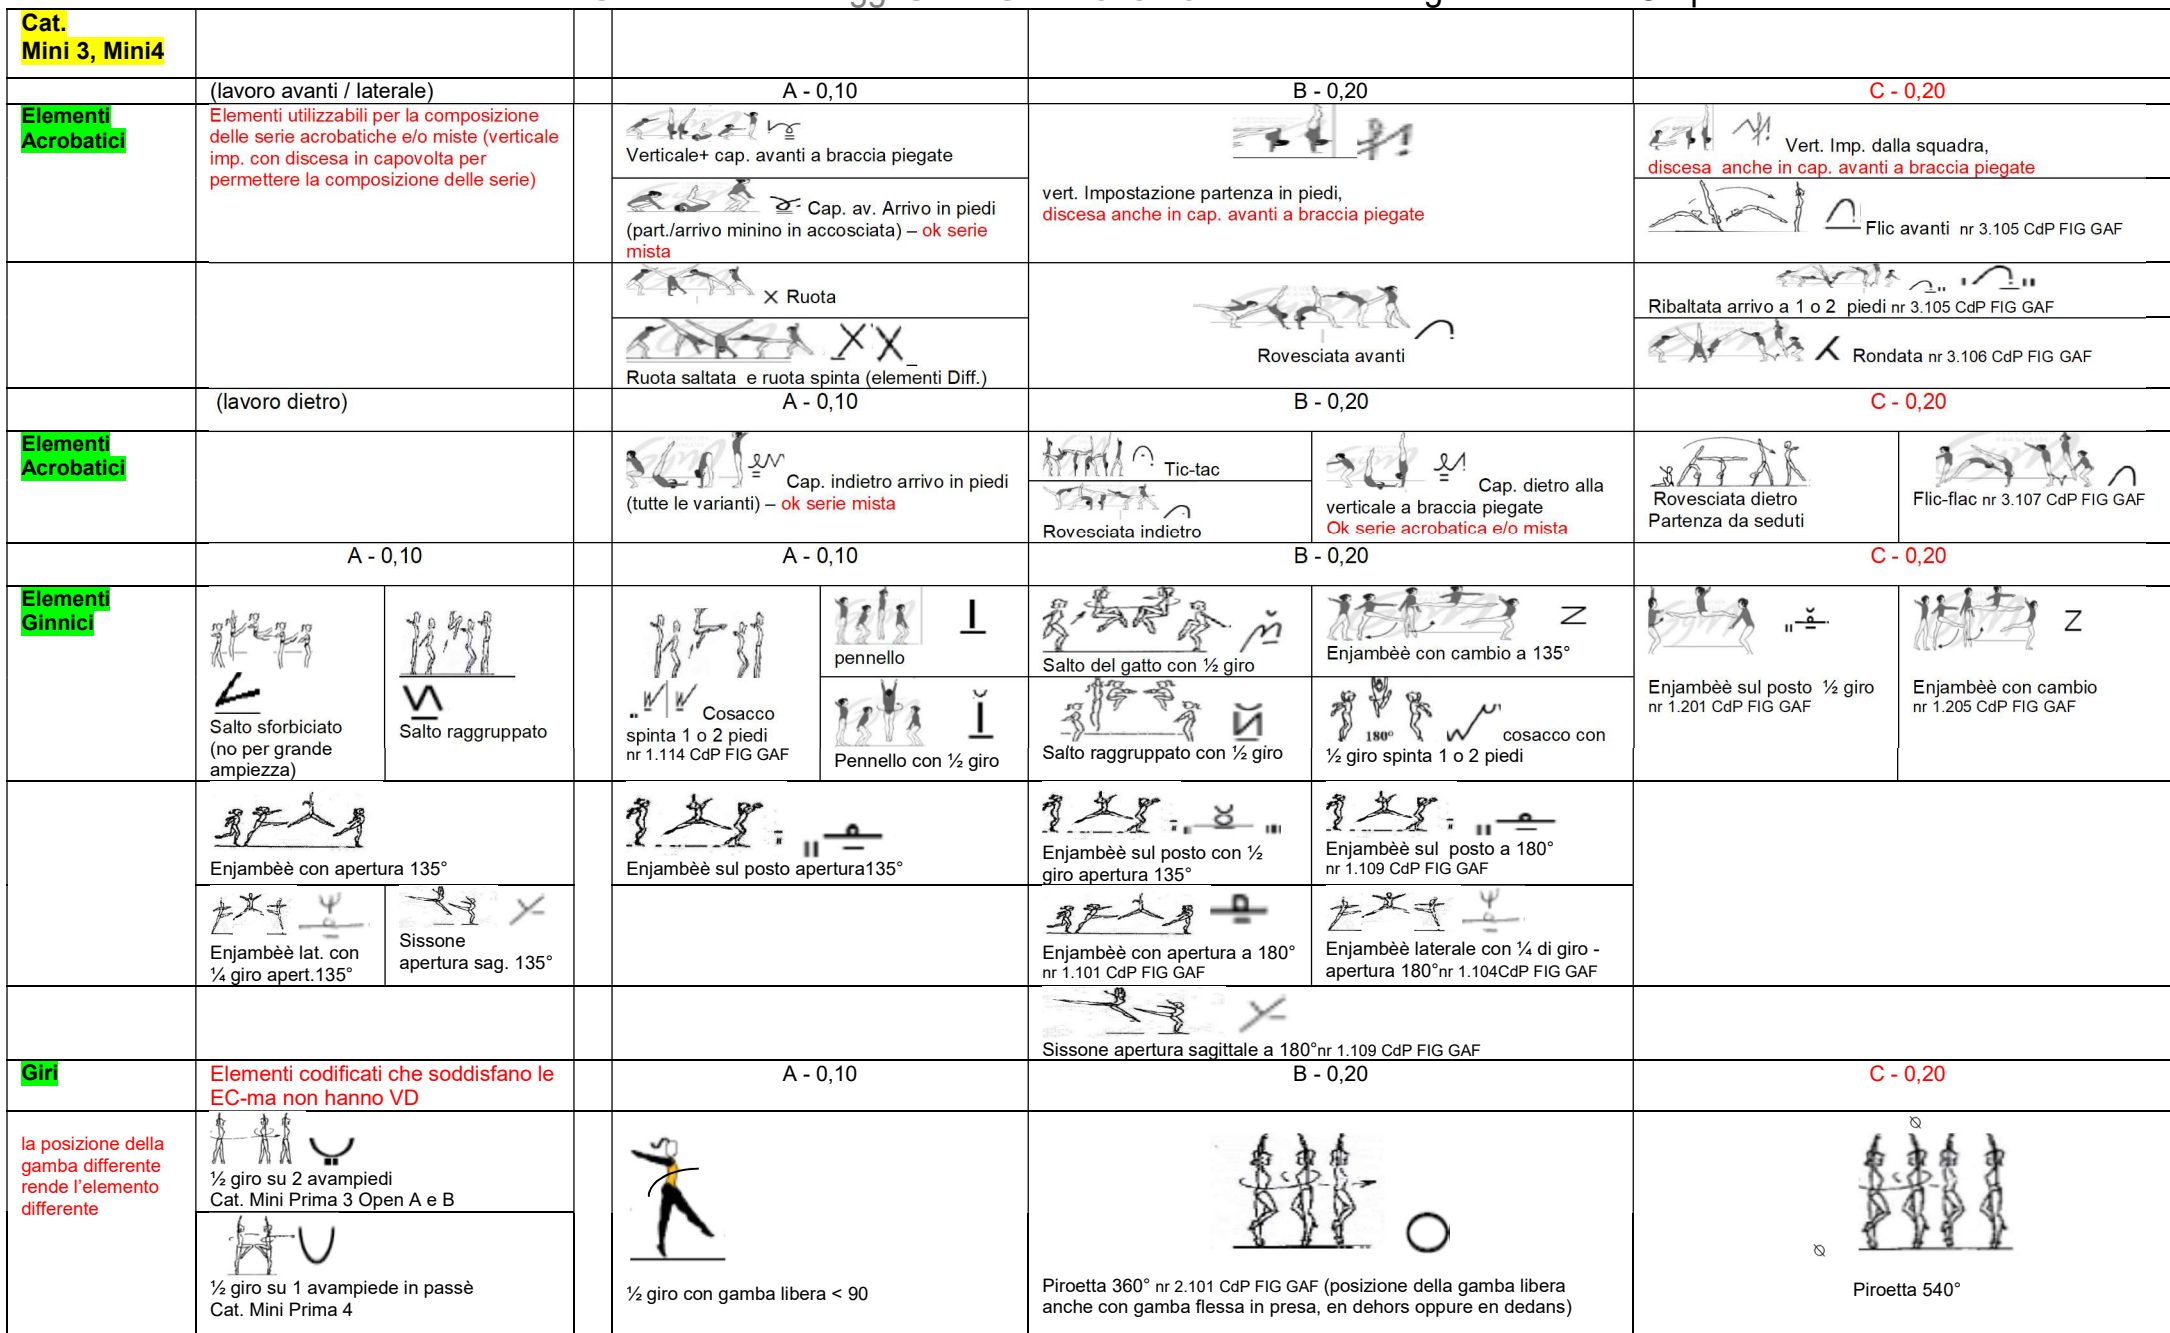 Cat.
Mini 3, Mini4
(lavoro avanti / laterale)
A - 0,10
B - 0,20
C - 0,20
Elementi
Acrobatici
Elementi utilizzabili per la composizione
delle serie acrobatiche e/o miste (verticale
imp. con discesa in capovolta per
permettere la composizione delle serie)
Verticale+ cap. avanti a braccia piegate
Cap. av. Arrivo in piedi
(part./arrivo minino in accosciata) – ok serie
mista
vert. Impostazione partenza in piedi,
discesa anche in cap. avanti a braccia piegate
Vert. Imp. dalla squadra,
discesa  anche in cap. avanti a braccia piegate
Flic avanti  nr 3.105 CdP FIG GAF
Ruota
Ruota saltata  e ruota spinta (elementi Diff.)
Rovesciata avanti
Ribaltata arrivo a 1 o 2  piedi nr 3.105 CdP FIG GAF
Rondata nr 3.106 CdP FIG GAF
(lavoro dietro)
A - 0,10
B - 0,20
C - 0,20
Elementi
Acrobatici
Cap. indietro arrivo in piedi
(tutte le varianti) – ok serie mista
Tic-tac
Rovesciata indietro
Cap. dietro alla
verticale a braccia piegate
Ok serie acrobatica e/o mista
Rovesciata dietro
Partenza da seduti
Flic-flac nr 3.107 CdP FIG GAF
A - 0,10
A - 0,10
B - 0,20
C - 0,20
Elementi
Ginnici
Salto sforbiciato
(no per grande
ampiezza)
Salto raggruppato
Cosacco
spinta 1 o 2 piedi
nr 1.114 CdP FIG GAF
pennello
Pennello con ½ giro
Salto del gatto con ½ giro
Salto raggruppato con ½ giro
Enjambèè con cambio a 135°
180°
cosacco con
½ giro spinta 1 o 2 piedi
Enjambèè sul posto  ½ giro
nr 1.201 CdP FIG GAF
Enjambèè con cambio
nr 1.205 CdP FIG GAF
Enjambèè con apertura 135°
Enjambèè sul posto apertura135°
Enjambèè sul posto con ½
giro apertura 135°
Enjambèè sul  posto a 180°
nr 1.109 CdP FIG GAF
Enjambèè lat. con
¼ giro apert.135°
Sissone
apertura sag. 135°
Enjambèè con apertura a 180°
nr 1.101 CdP FIG GAF
Enjambèè laterale con ¼ di giro -
apertura 180°nr 1.104CdP FIG GAF
Sissone apertura sagittale a 180°nr 1.109 CdP FIG GAF
Giri
Elementi codificati che soddisfano le
EC-ma non hanno VD
A - 0,10
B - 0,20
C - 0,20
la posizione della
gamba differente
rende l'elemento
differente
½ giro su 2 avampiedi
Cat. Mini Prima 3 Open A e B
½ giro su 1 avampiede in passè
Cat. Mini Prima 4
½ giro con gamba libera < 90
Piroetta 360° nr 2.101 CdP FIG GAF (posizione della gamba libera
anche con gamba flessa in presa, en dehors oppure en dedans)
Piroetta 540°